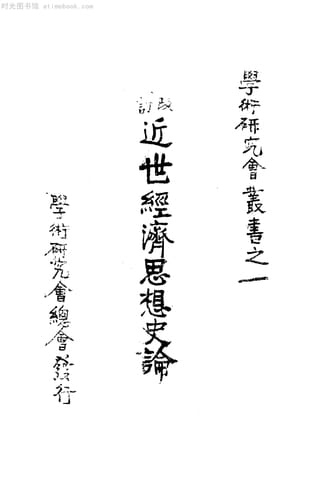 时光图书馆 atimebook.com
學術研究會叢書之一
改訂
近世經濟思想史論
學術研究會總會發行